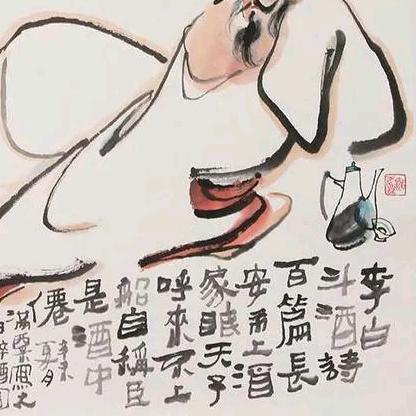 李白
斗酒詩
百篇長
安市上酒
家眠天子
呼來不上
船自稱臣
是酒中
僊
辛未夏月
滿堂寫之
白醉酒圖